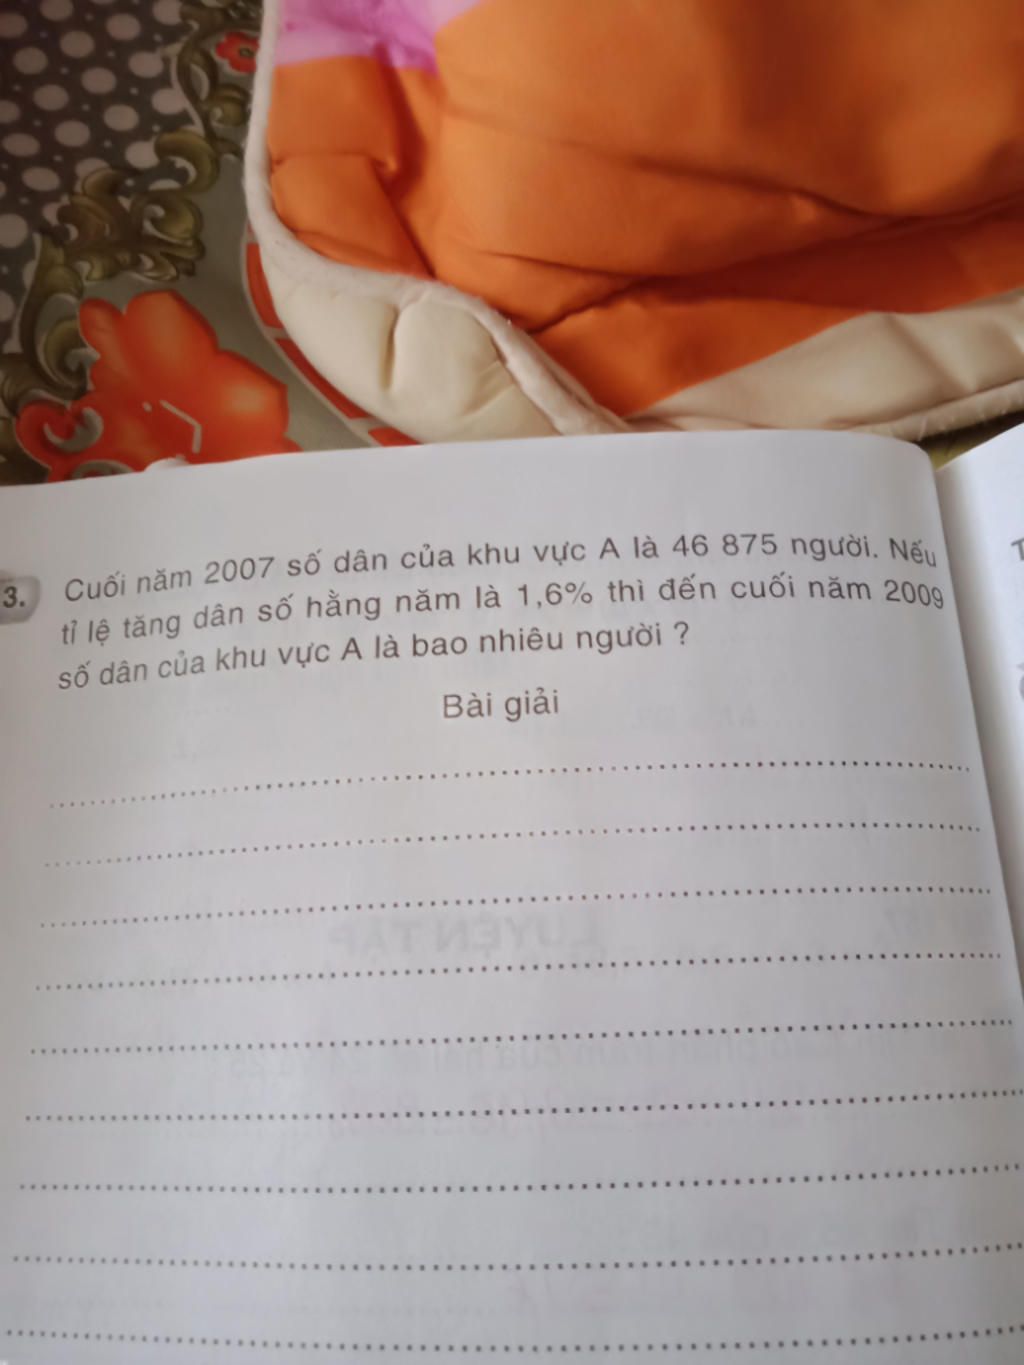 3. Cuối năm 2007 số dân của khu vực A là 46 875 người. Nếu
tỉ lệ tăng dân số hằng năm là 1,6% thì đến cuối năm 2009
số dân của khu vực A là bao nhiêu người ?
Bài giải
LUYỆN TẬP